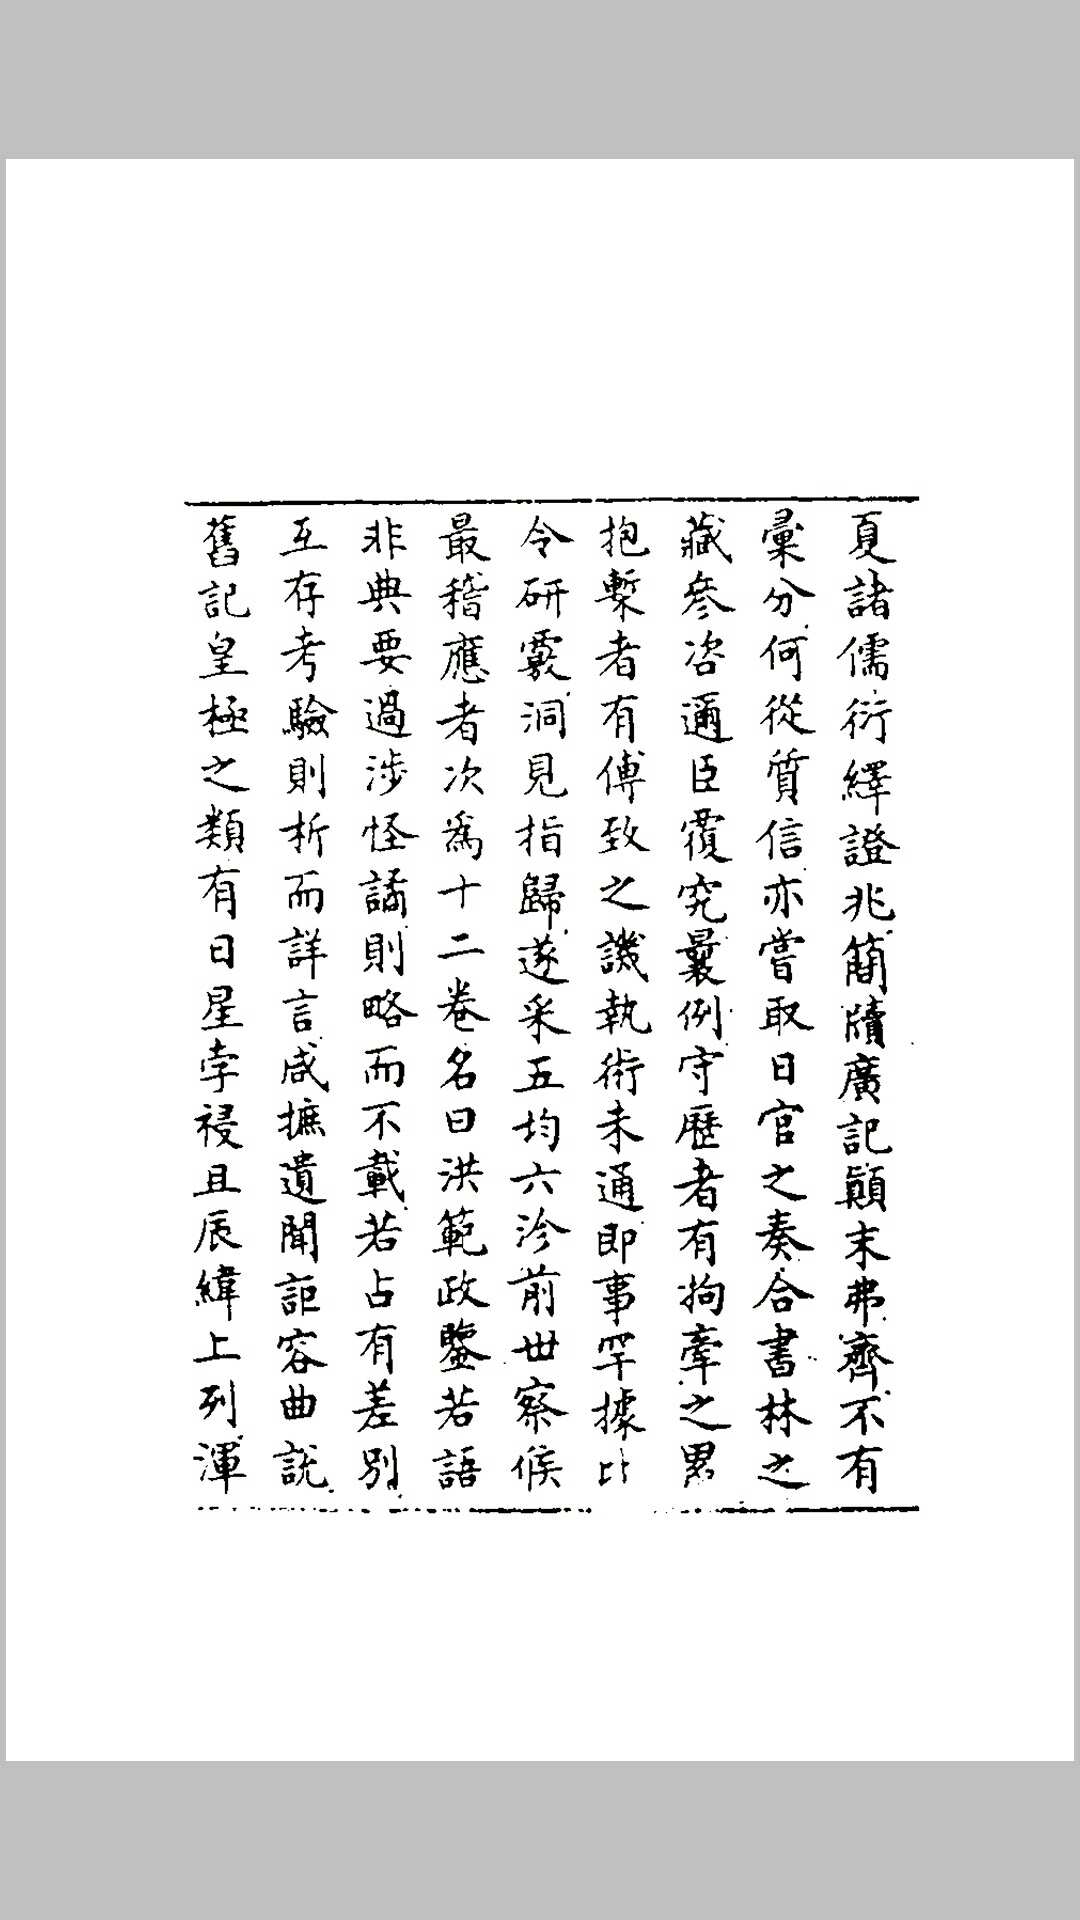 夏諸儒衍繹證兆簡牘廣記顚末弗齊不有
彙分何從質信亦嘗取日官之奏合書林之
藏參咨邇臣覆究曩例守歷者有拘牽之累
抱槧者有傅致之譏執術未通即事罕據比
令研覈洞見指歸遂采五均六沴前世察候
最稽應者次為十二卷名曰洪範政鑒若語
非典要過涉怪譎則略而不載若占有差別
互存考驗則析而詳言咸摭遺聞詎容曲說
舊記皇極之類有日星孛祲且辰緯上列渾